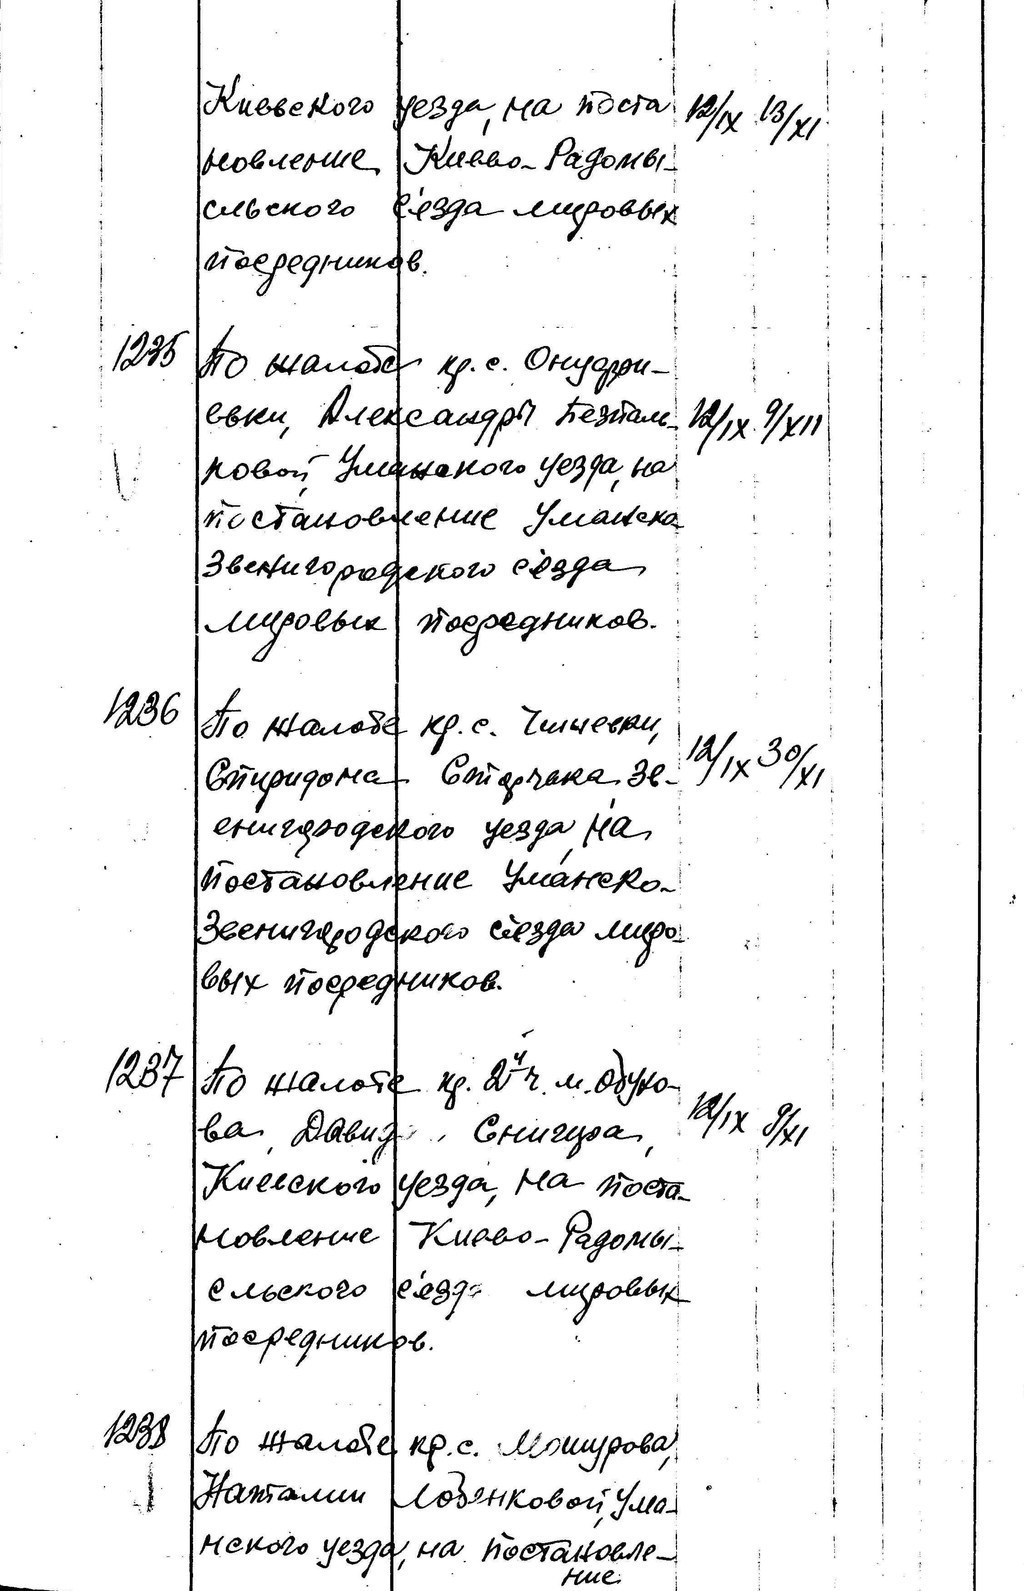 Киевского уезда, на поста 12/IX 13/XI
новление Киево-Радомы-
сльского с'езда мировых
посредников.
1235 По жалобе кр. с. Онуфри-
евки, Александры Безпаль- 12/IX 9/XII
ковой, Уманского уезда, на
постановление Уманско
Звенигородского с'езда
мировых посредников.
1236 По жалобе кр. с. Чижевки, 12/IX 30/XI
Спиридона Старчака Зв-
енигородского уезда, на
постановление Уманско-
Звенигородского с'езда миро-
вых посредников.
1237 По жалобе кр. 2й ч. м. Обухо-
ва, Давида Снигура, 12/IX 9/XI
Киевского уезда, на поста-
новление Киево-Радомы-
сльского с'езда мировых
посредников.
1238 По жалобе кр. с. Мошурова,
Наталии Лобенковой, Ума-
нского уезда, на постановле-
ние